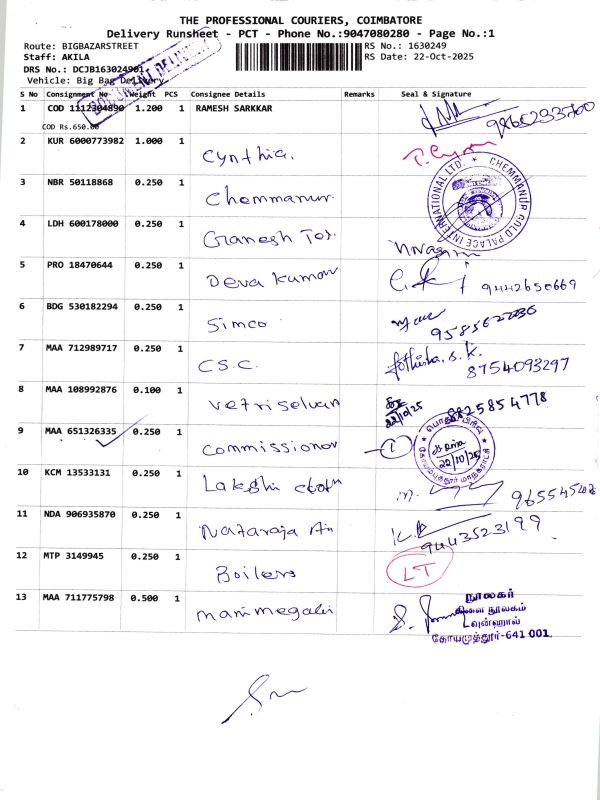 THE PROFESSIONAL COURIERS, COIMBATORE
Delivery Runsheet - PCT - Phone No.:9047080280 - Page No.:1
Route: BIGBAZARSTREET
RS No.: 1630249
Staff: AKILA
RS Date: 22-Oct-2025
DRS No.: DCJB163024901
Vehicle: Big Bag Delivery
S No Consignment No Weight PCS Consignee Details Remarks Seal & Signature
1 COD 1112304890 1.200 1 RAMESH SARKKAR
COD Rs.650.00
2 KUR 6000773982 1.000 1 Cynthia.
3 NBR 50118868 0.250 1 Chemmanur.
CHEMMANUR GOLD PALACE INTERNATIONAL LTD.
4 LDH 600178000 0.250 1 Ganesh Tex.
5 PRO 18470644 0.250 1 Deva kumar 9442650669
6 BDG 530182294 0.250 1 Simco
7 MAA 712989717 0.250 1 C.S.C. Jothisha. S. K.
8754093297
8 MAA 108992876 0.100 1 vetriselvan 22/10/25 8825854778
9 MAA 651326335 0.250 1 commissioner 1
22/10/25
10 KCM 13533131 0.250 1 Lakshi
11 NDA 906935870 0.250 1 Nataraja An 9443523199
12 MTP 3149945 0.250 1 Boilers LT
13 MAA 711775798 0.500 1 manimegalai
நூலகர்
கிளை நூலகம்
டவுன்ஹால்
கோயமுத்தூர்-641 001.